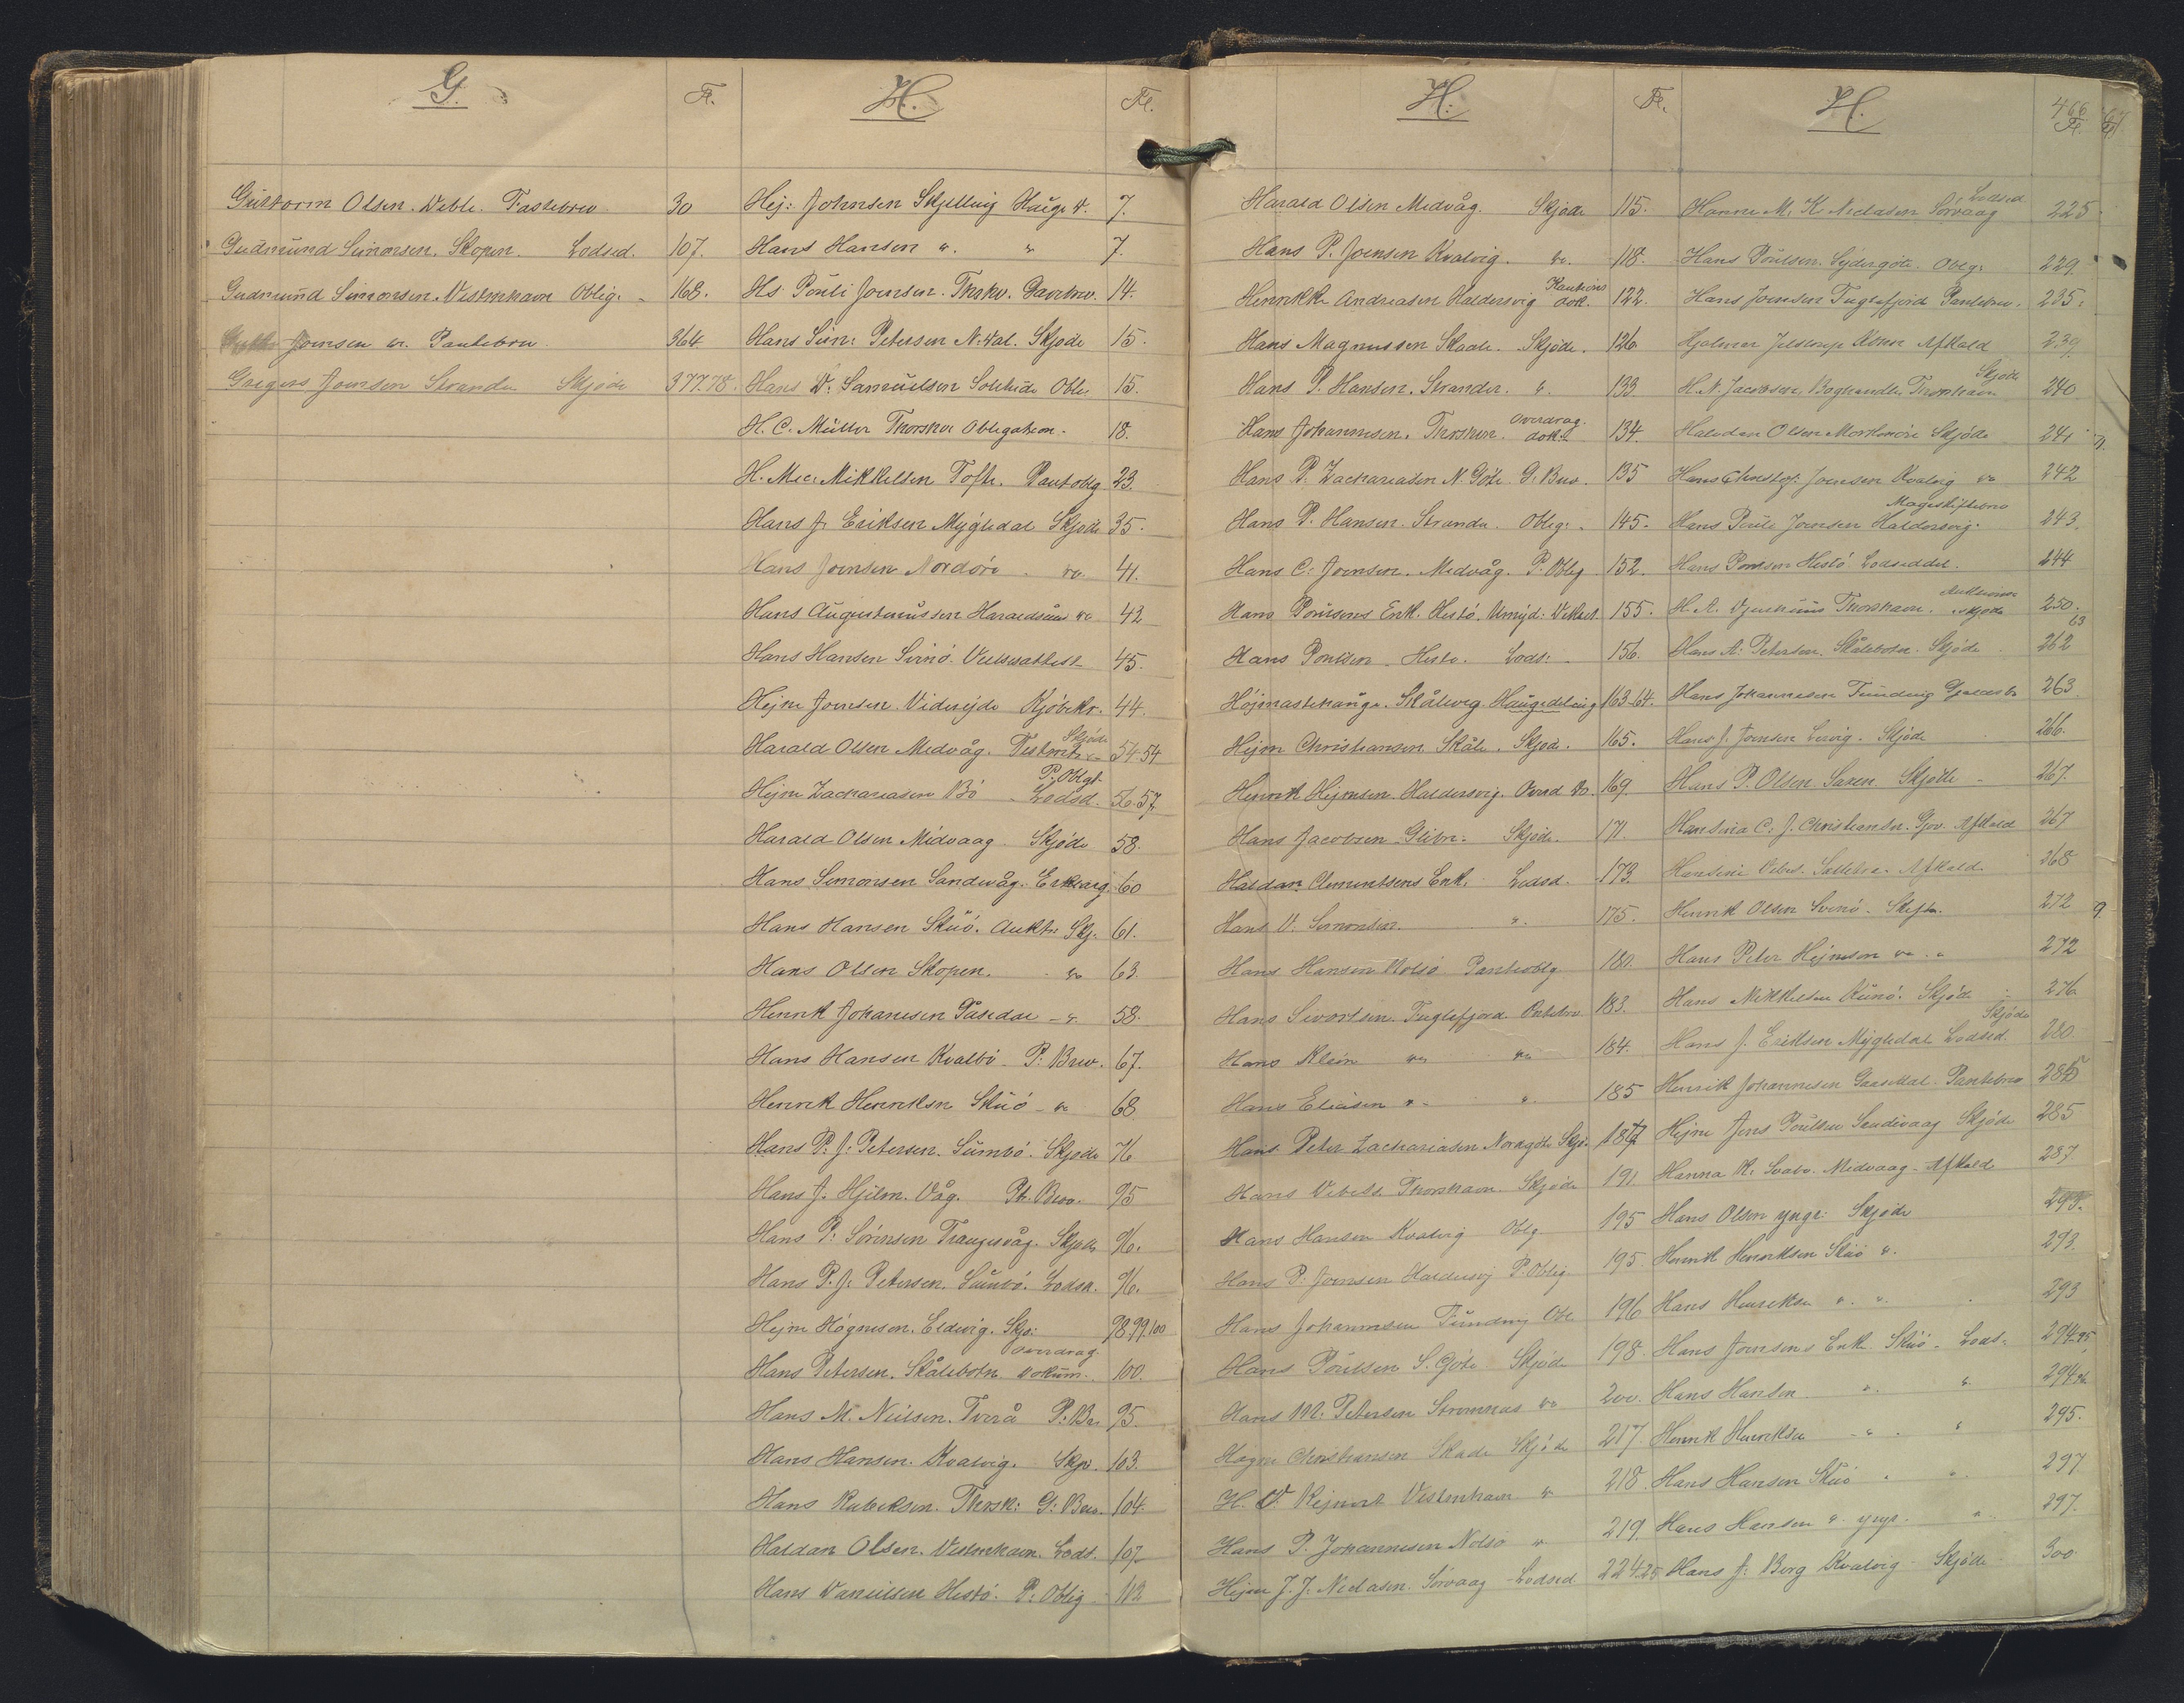 G. Fl.
Guttorm Olsen. Deble. Fastebrev 30
Gudmund Simonsen. Skopen. Lodsed. 107.
Gudmund Simonsen. Vestmhavn Oblig. 168.
Joensen Pantebrev 364
Gregers Joensen Strande Skjøde 377.78.
H. Fl.
Hej: Johnsen Skjelling Hauge D. 7.
Hans Hansen " " 7.
Hs. Pouli Joensen. Thshv. Gavebrev. 14.
Hans Sim: Petersen N.dal. Skjøde 15.
Hans D. Samuelsen Solehide Obl. 15.
H. C. Müller Thorshvn Obligation. 18.
H. Mic. Mikkelsen Tofte. Pantoblg 23.
Hans J. Eriksen Mygledal Skjøde 35.
Hans Joensen Nordöre do. 41.
Hans Augustinussen Haraldsund do 42
Hans Hansen Svinö. Vielsesattest 45.
Hejne Joensen. Viderejde Kjøbekr. 44.
Skjøde
Harald Olsen Medvåg. Testmte 54-54
P. Oblgt.
Hejne Zachariasen Bö Lodsd. 56-57
Harald Olsen Midvaag. Skjöde 58.
Hans Simonsen Sandevåg. Erklærg. 60
Hans Hansen Skuö. Aukts Skj. 61.
Hans Olsen Skopen. do 63.
Henrik Johanesen Gåsedal " 58.
Hans Hansen Kvalbö P. Brev. 67.
Henrik Henriksen Skuö do 68
Hans P. J. Petersen. Sumbö. Skjøde 76
Hans J. Hjelm. Våg. Pt. Brev. 95
Hans P. Sörensen Trangisvåg. Skjøde 96.
Hans P. J. Petersen. Sumbö. Lodsd. 96.
Hejne Högnesen. Eldevig. Skjø: 98.99.100
Overdrag.
Hans Petersen. Skålebotn Dokum. 100.
Hans M. Nielsen. Tverå P. Br. 95.
Hans Hansen. Kvalvig. Skjø. 103.
Hans Rubeksen. Thorsh: G: Brev. 104.
Haldan Olsen. Vestmhavn. Lods. 107
Hans Danielsen Hestö. P: Oblig 112
H. Fl.
Harald Olsen Medvåg. Skjøde 115.
Hans P. Joensen Kvalvig. do. 118.
Kautions
Henrikke Andreasen Haldersvig dok. 122.
Hans Magnussen Skaale. Skjøde. 126
Hans P. Hansen. Strander. ". 133
Overdrag.
Hans Johannesen. Thorshvn. dokt 134.
Hans P. Zachariasen N. Göte. G. Brev. 135
Hans P. Hansen. Strande. Oblig. 145.
Hans C. Joensen. Medvåg. P. Oblg 152.
Hans Poulsens Enk. Hestö. 155.
Hans Poulsen Hestö. Lods: 156.
Höjmastehauge. Skålevig. Haugedeling 163-64.
Hejne Christiansen Skåle. Skjød. 165.
Henrik Hejnesen. Haldersvig. 169.
Hans Jacobsen Glibre. Skjøde. 171.
Haldan Clementsens Enk. Lodsd. 173.
Hans D. Simonsen. ". 175.
Hans Hansen Nolsö Panteoblg 180.
Hans Sivertsen. Fuglefjord Pntebrev 183.
Hans Klein do do 184.
Hans Eliasen " " 185
Hans Peter Zachariasen Nordgöte Skjø. 187
Hans Debess Thorshavn. Skjøde 191.
Hans Hansen Kvalvig Oblg 195
Hans P. Joensen Haldersvig P. Oblig 195
Hans Johannesen Funding Obl 196
Hans Poulsen S. Göte Skjøde 198.
Hans M. Petersen Strømnæs do 200.
Hogne Christiansen Skaale Skjøde 217.
H. D. Rejnert Vestmhavn " 218.
Hans P. Johannesen Nolsö " 219.
Hejne J. J. Niclasen. Sørvaag Lodsed 224.25
H. 466 Fl.
Lodsed
Hanne M. K. Niclasen Sørvaag 225
Hans Poulsen. Sydergöte. Oblg. 229.
Hans Joensen Fuglefjord Pantebrev. 235.
Hjalmar Jelstrup Afkald 239
Skjøde
H. N. Jacobsen, Boghandler Thorshavn 240
Halvdan Olsen Morskranes Skjøde 241
Hans Christof. Joensen Kvalvig do 242
Mageskiftebrev
Hans Pouli Joensen Haldersvig. 243.
Hans Poulsen Hestö Lodseddel. 244
Auktions
H. A. Djurhuus Thorshavn. skjøde 250.
63
Hans A. Petersen. Skålebotn. Skjøde 262
Hans Johannesen Funding 263.
Hans J. Joensen Lervig. Skjøde 266.
Hans P. Olsen. Saxen Skjøde 267.
Hansina C. J. Christiansen. Gjov. Afkald 267
Hansine Debes. Afkald. 268
Henrik Olsen Svinö. Skifte. 272
Hans Peter Hejnesen do. " 272
Hans Mikkelsen Kunö. Skjøde 276
Skjøde
Hans J. Eriksen Mygledal Lodsed. 280.
Henrik Johannesen Gaasedal. Pantebrev 285
Hejne Jens Poulsen Sandevaag Skjøde 285
Hanna K. Midvaag. Afkald 287
Hans Olsen yngr. Skjøde 293.
Henrik Henriksen Skuö ". 293.
Hans Henriksen ". ". 293
Hans Joensens Enk. Skuö. Lods. 294-95
Hans Hansen " " 294
Henrik Henriksen " " 295.
Hans Hansen Skuö " " 297
Hans Hansen " yngr. " 297.
Hans J. Berg Kvalvig Skjøde 300